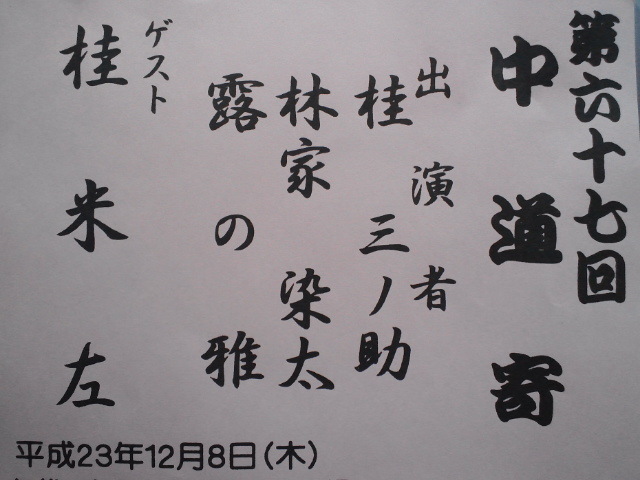 第六十七回
中道寄
出演者
桂三ノ助
林家染太
露の雅
ゲスト
桂米左
平成23年12月8日(木)